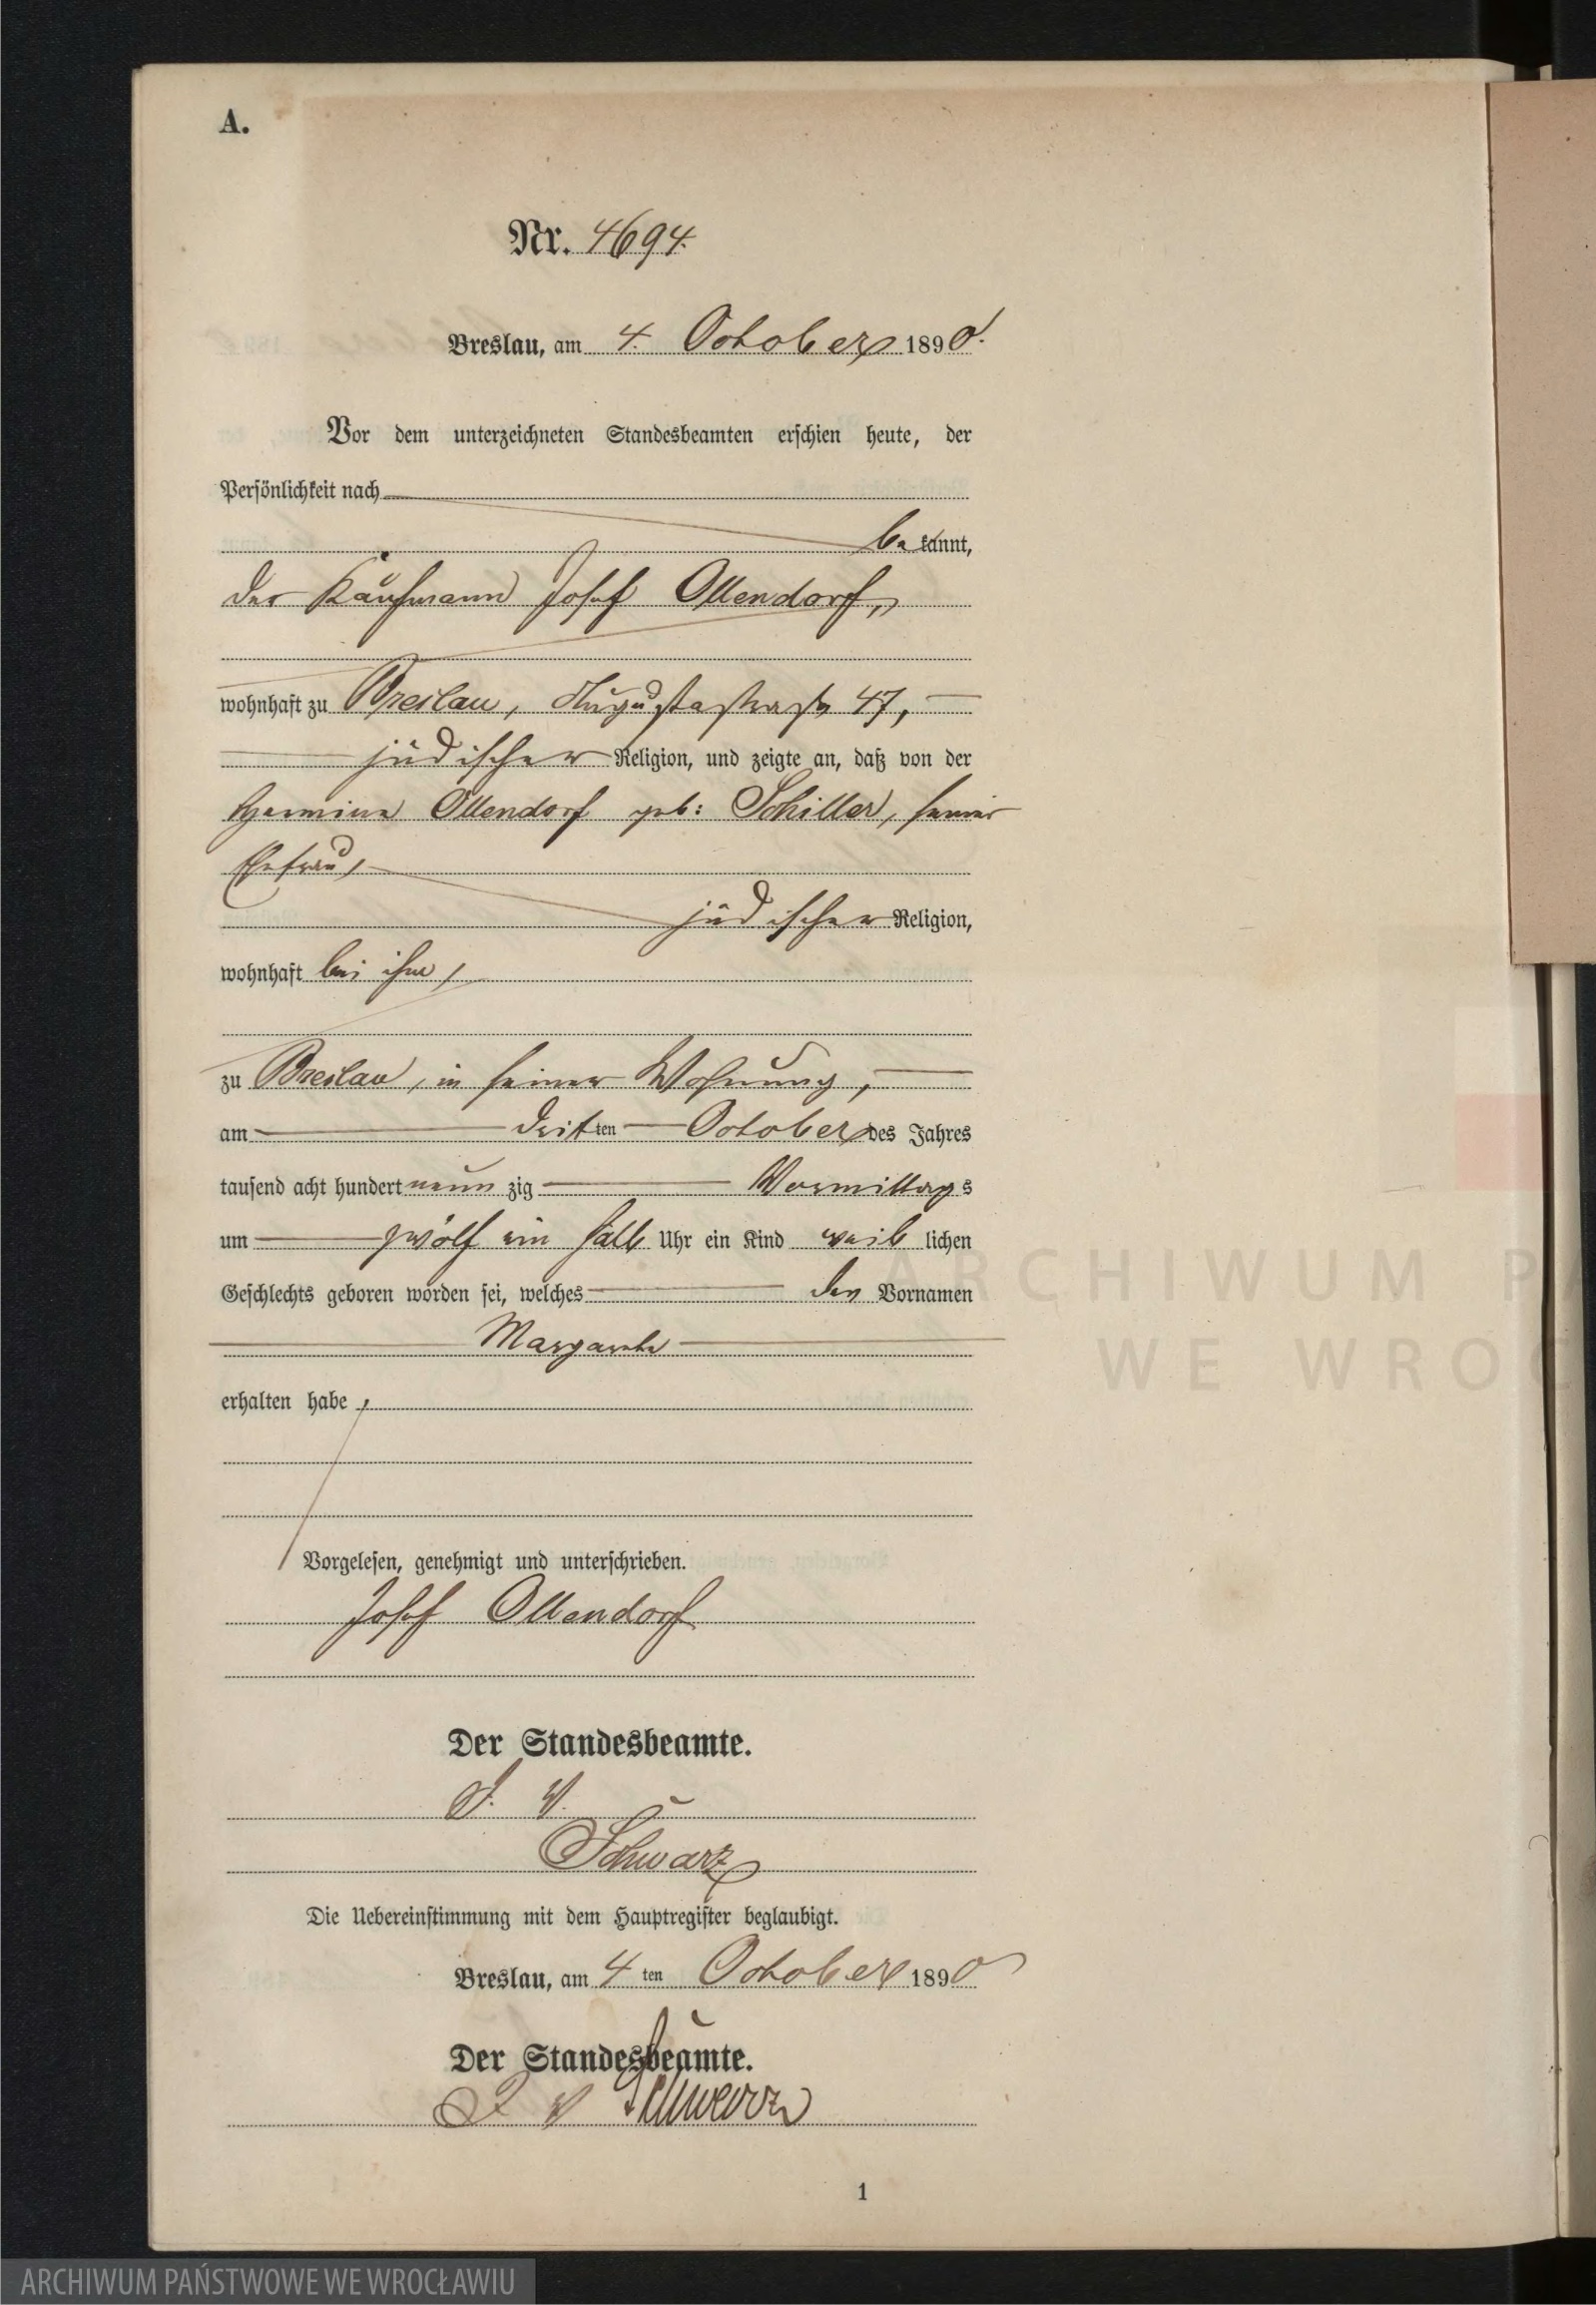 A.
Nr. 4694.
Breslau, am 4. October 1890.
Vor dem unterzeichneten Standesbeamten erschien heute, der
Persönlichkeit nach
be kannt,
der Kaufmann Josef Ollendorf,
wohnhaft zu Breslau, Augustastraße 47,
jüdischer Religion, und zeigte an, daß von der
Hermine Ollendorf geb: Schiller, seiner
Ehefrau,
jüdischer Religion,
wohnhaft bei ihm,
zu Breslau, in seiner Wohnung,
am dritten October des Jahres
tausend acht hundert neun zig Vormittags
um zwölf ein halb Uhr ein Kind weib lichen
Geschlechts geboren worden sei, welches den Vornamen
Margarethe
erhalten habe,
Vorgelesen, genehmigt und unterschrieben.
Josef Ollendorf
Der Standesbeamte.
J. V.
Schwarz
Die Uebereinstimmung mit dem Hauptregister beglaubigt.
Breslau, am 4 ten October 1890
Der Standesbeamte.
J V Schwarz
1
ARCHIWUM PA
WE WROC
ARCHIWUM PAŃSTWOWE WE WROCŁAWIU